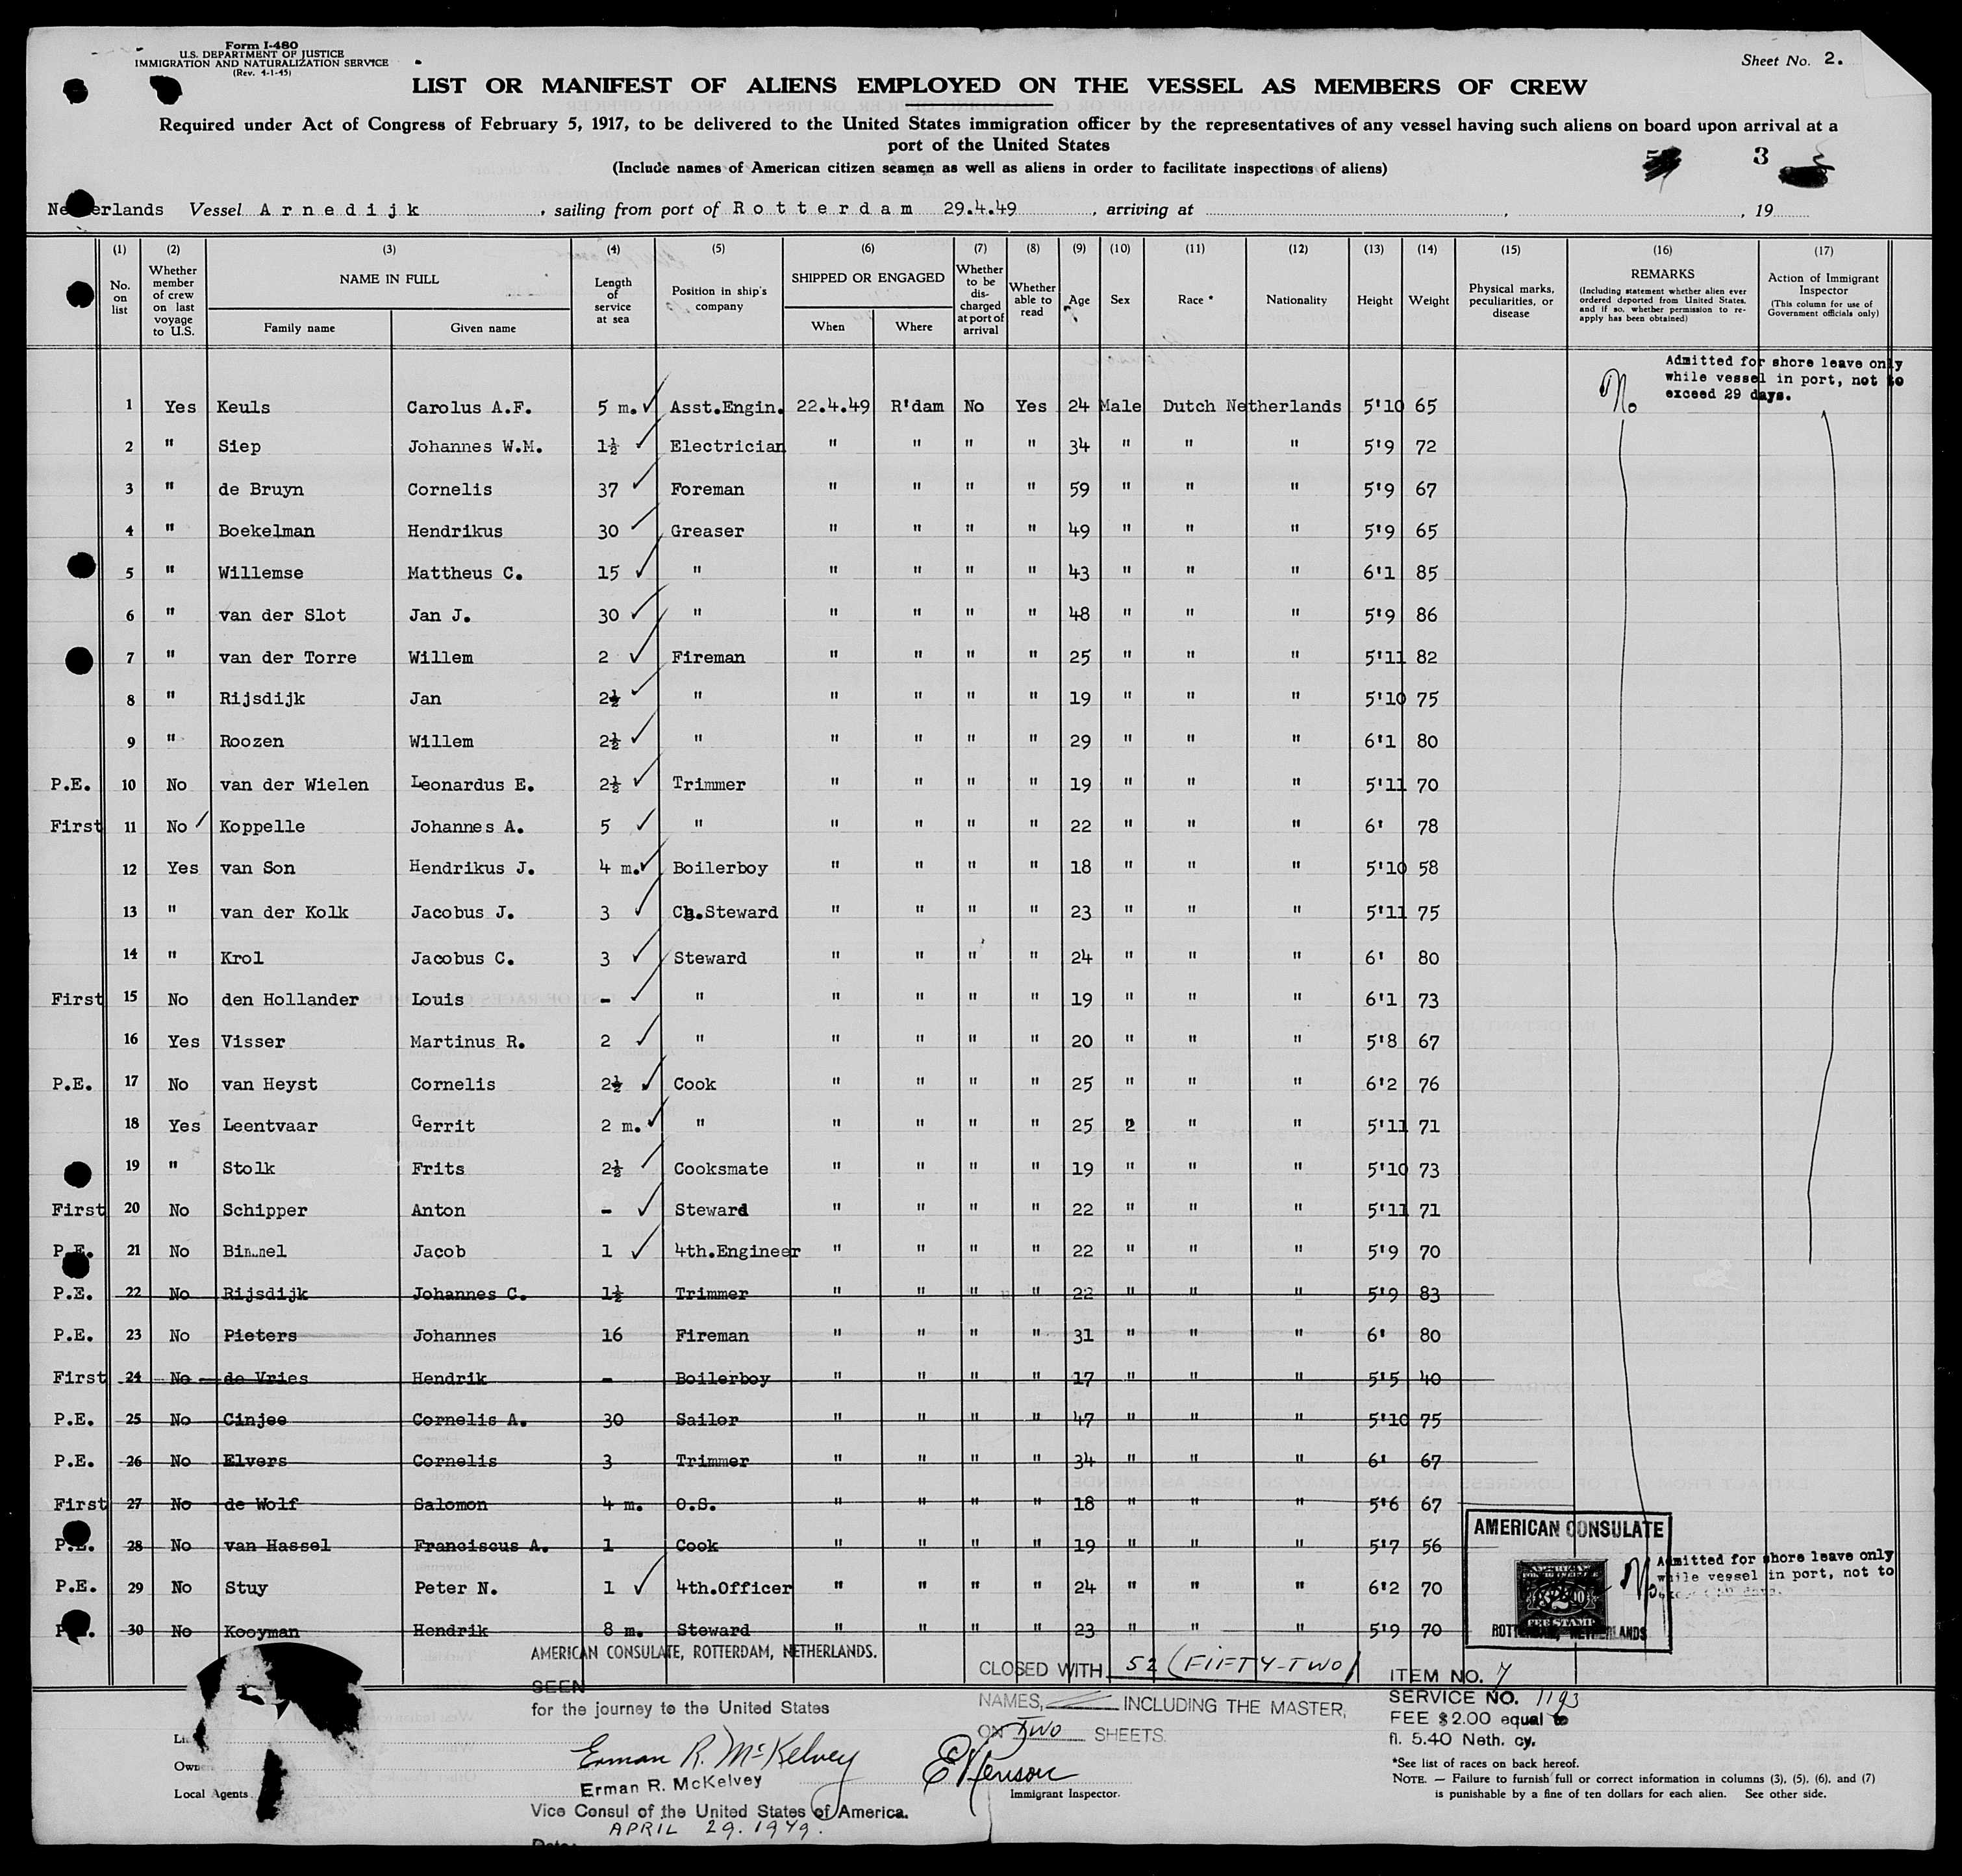 Form I-480
U.S. DEPARTMENT OF JUSTICE
IMMIGRATION AND NATURALIZATION SERVICE
(Rev. 4-1-45)
Sheet No. 2.
LIST OR MANIFEST OF ALIENS EMPLOYED ON THE VESSEL AS MEMBERS OF CREW
Required under Act of Congress of February 5, 1917, to be delivered to the United States immigration officer by the representatives of any vessel having such aliens on board upon arrival at a
port of the United States
(Include names of American citizen seamen as well as aliens in order to facilitate inspections of aliens)
3
Netherlands Vessel Arnedijk, sailing from port of Rotterdam 29.4.49, arriving at , , 19
(1) (2) (3) (4) (5) (6) (7) (8) (9) (10) (11) (12) (13) (14) (15) (16) (17)
No. on list
Whether member of crew on last voyage to U.S.
NAME IN FULL
Family name Given name
Length of service at sea
Position in ship's company
SHIPPED OR ENGAGED
When Where
Whether to be discharged at port of arrival
Whether able to read
Age
Sex
Race *
Nationality
Height
Weight
Physical marks, peculiarities, or disease
REMARKS
(Including statement whether alien ever ordered deported from United States, and if so, whether permission to re-apply has been obtained)
Action of Immigrant Inspector
(This column for use of Government officials only)
Admitted for shore leave only
while vessel in port, not to
exceed 29 days.
1 Yes Keuls Carolus A.F. 5 m. Asst.Engin. 22.4.49 R'dam No Yes 24 Male Dutch Netherlands 5'10 65 No
2 " Siep Johannes W.M. 1½ Electrician " " " " 34 " " " 5'9 72
3 " de Bruyn Cornelis 37 Foreman " " " " 59 " " " 5'9 67
4 " Boekelman Hendrikus 30 Greaser " " " " 49 " " " 5'9 65
5 " Willemse Mattheus C. 15 " " " " " 43 " " " 6'1 85
6 " van der Slot Jan J. 30 " " " " " 48 " " " 5'9 86
7 " van der Torre Willem 2 Fireman " " " " 25 " " " 5'11 82
8 " Rijsdijk Jan 2½ " " " " " 19 " " " 5'10 75
9 " Roozen Willem 2½ " " " " " 29 " " " 6'1 80
P.E. 10 No van der Wielen Leonardus E. 2½ Trimmer " " " " 19 " " " 5'11 70
First 11 No Koppelle Johannes A. 5 " " " " " 22 " " " 6' 78
12 Yes van Son Hendrikus J. 4 m. Boilerboy " " " " 18 " " " 5'10 58
13 " van der Kolk Jacobus J. 3 Ch.Steward " " " " 23 " " " 5'11 75
14 " Krol Jacobus C. 3 Steward " " " " 24 " " " 6' 80
First 15 No den Hollander Louis - " " " " " 19 " " " 6'1 73
16 Yes Visser Martinus R. 2 " " " " " 20 " " " 5'8 67
P.E. 17 No van Heyst Cornelis 2½ Cook " " " " 25 " " " 6'2 76
18 Yes Leentvaar Gerrit 2 m. " " " " " 25 " " " 5'11 71
19 " Stolk Frits 2½ Cooksmate " " " " 19 " " " 5'10 73
First 20 No Schipper Anton - Steward " " " " 22 " " " 5'11 71
P.E. 21 No Jacob 1 4th.Engineer " " " " 22 " " " 5'9 70
P.E. 22 No Rijsdijk Johannes C. 1½ Trimmer " " " " 22 " " " 5'9 83
P.E. 23 No Pieters Johannes 16 Fireman " " " " 31 " " " 6' 80
First 24 No de Vries Hendrik - Boilerboy " " " " 17 " " " 5'5 40
P.E. 25 No Cinjee Cornelis A. 30 Sailor " " " " 47 " " " 5'10 75
P.E. 26 No Elvers Cornelis 3 Trimmer " " " " 34 " " " 6' 67
First 27 No de Wolf Salomon 4 m. O.S. " " " " 18 " " " 5'6 67
P.E. 28 No van Hassel Franciscus A. 1 Cook " " " " 19 " " " 5'7 56
P.E. 29 No Stuy Peter N. 1 4th.Officer " " " " 24 " " " 6'2 70 No
30 No Kooyman Hendrik 8 m. Steward " " " " 23 " " " 5'9 70
AMERICAN CONSULATE
$2.00
FEE STAMP
ROTTERDAM, NETHERLANDS
Admitted for shore leave only
while vessel in port, not to
AMERICAN CONSULATE, ROTTERDAM, NETHERLANDS.
SEEN
for the journey to the United States
Erman R. McKelvey
Erman R. McKelvey
Vice Consul of the United States of America.
APRIL 29. 1949.
Date:
CLOSED WITH 52 (FIFTY-TWO)
NAMES, INCLUDING THE MASTER,
ON TWO SHEETS.
Immigrant Inspector.
ITEM NO. 7
SERVICE NO. 1193
FEE $2.00 equal to
fl. 5.40 Neth. cy.
*See list of races on back hereof.
NOTE. — Failure to furnish full or correct information in columns (3), (5), (6), and (7)
is punishable by a fine of ten dollars for each alien. See other side.
Local Agents